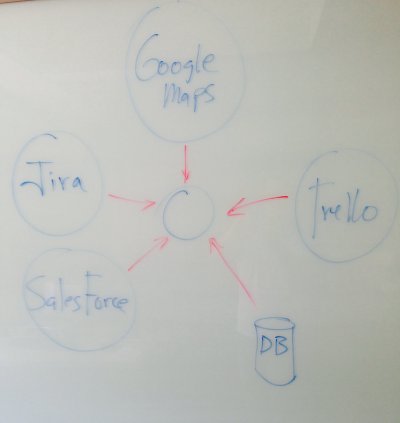 Google
Maps
Jira
Trello
SalesForce
DB